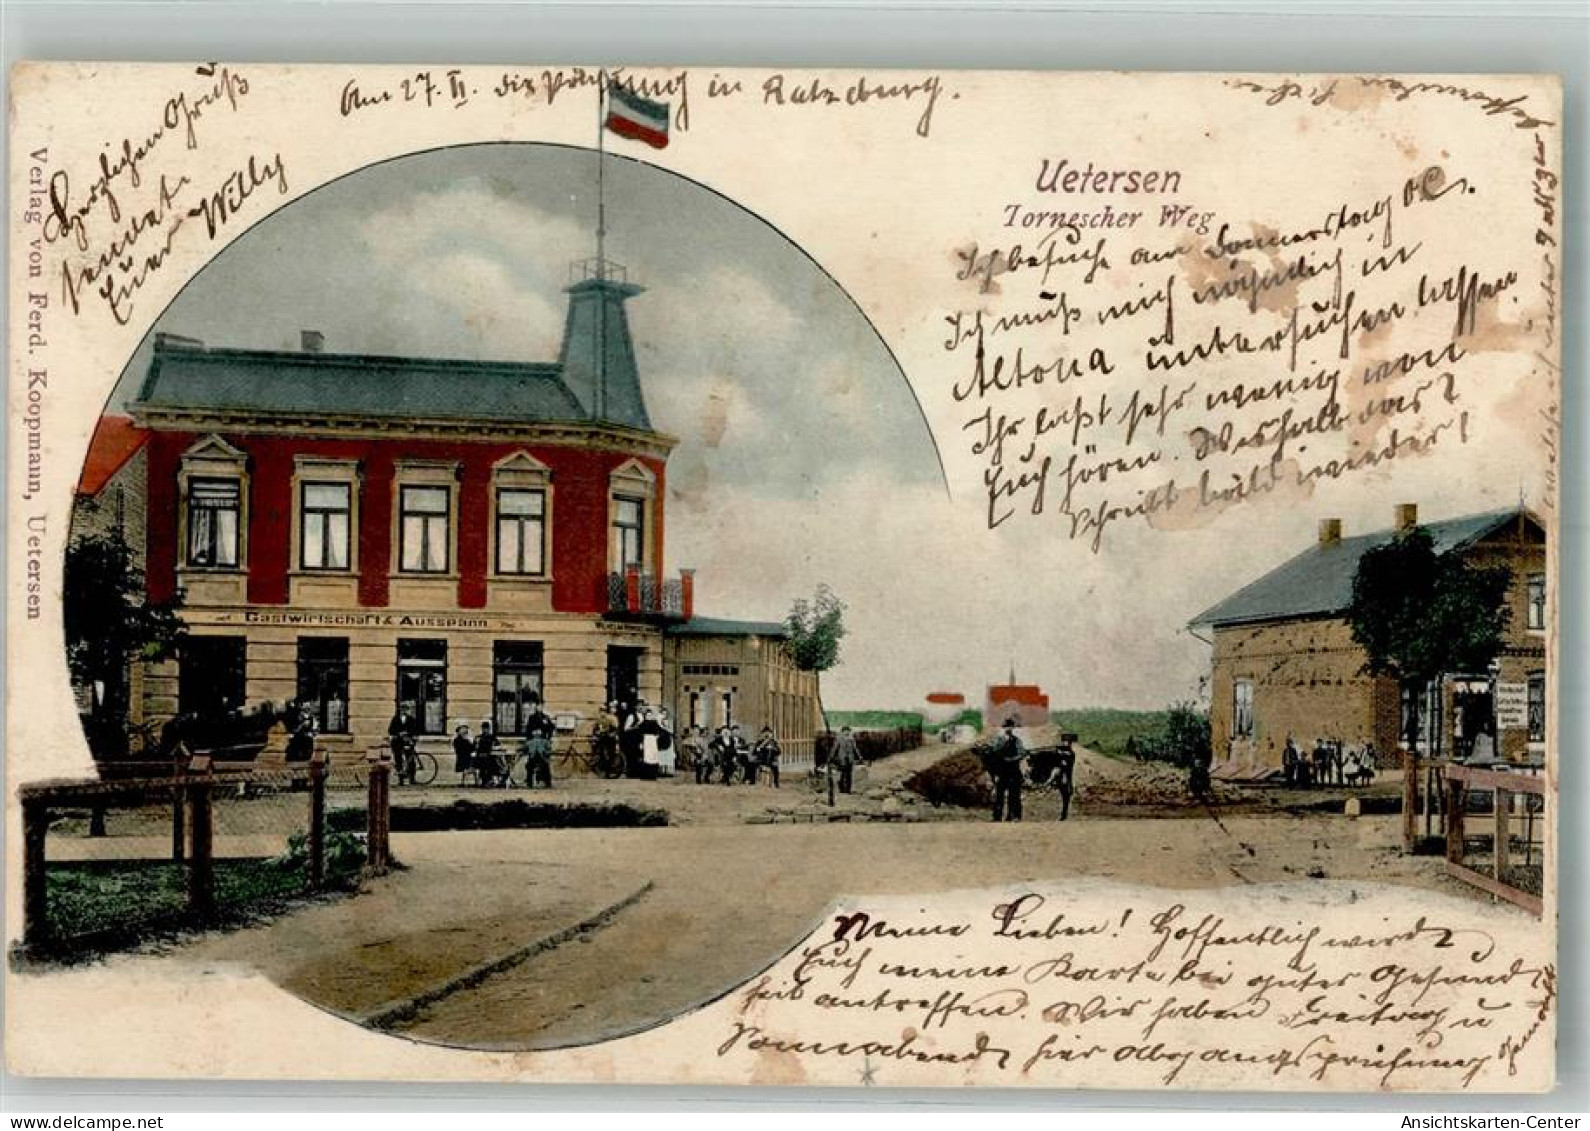 Am 27. II. die Prüfung in Ratzeburg.
Herzlichen Gruß
sendet
Euer Willy
Verlag von Ferd. Koopmann, Uetersen
Uetersen
Tornescher Weg
Ich besuche am Donnerstag
Ich muß mich nämlich in
Altona untersuchen lassen.
Ihr laßt sehr wenig von
Euch hören. Weshalb das?
Schreibt bald wieder!
Gastwirtschaft & Ausspann
Meine Lieben! Hoffentlich wird
Euch meine Karte bei guter Gesund
heit antreffen. Wir haben Freitag u
Sonnabend hier Abgangsprüfung
Ansichtskarten-Center